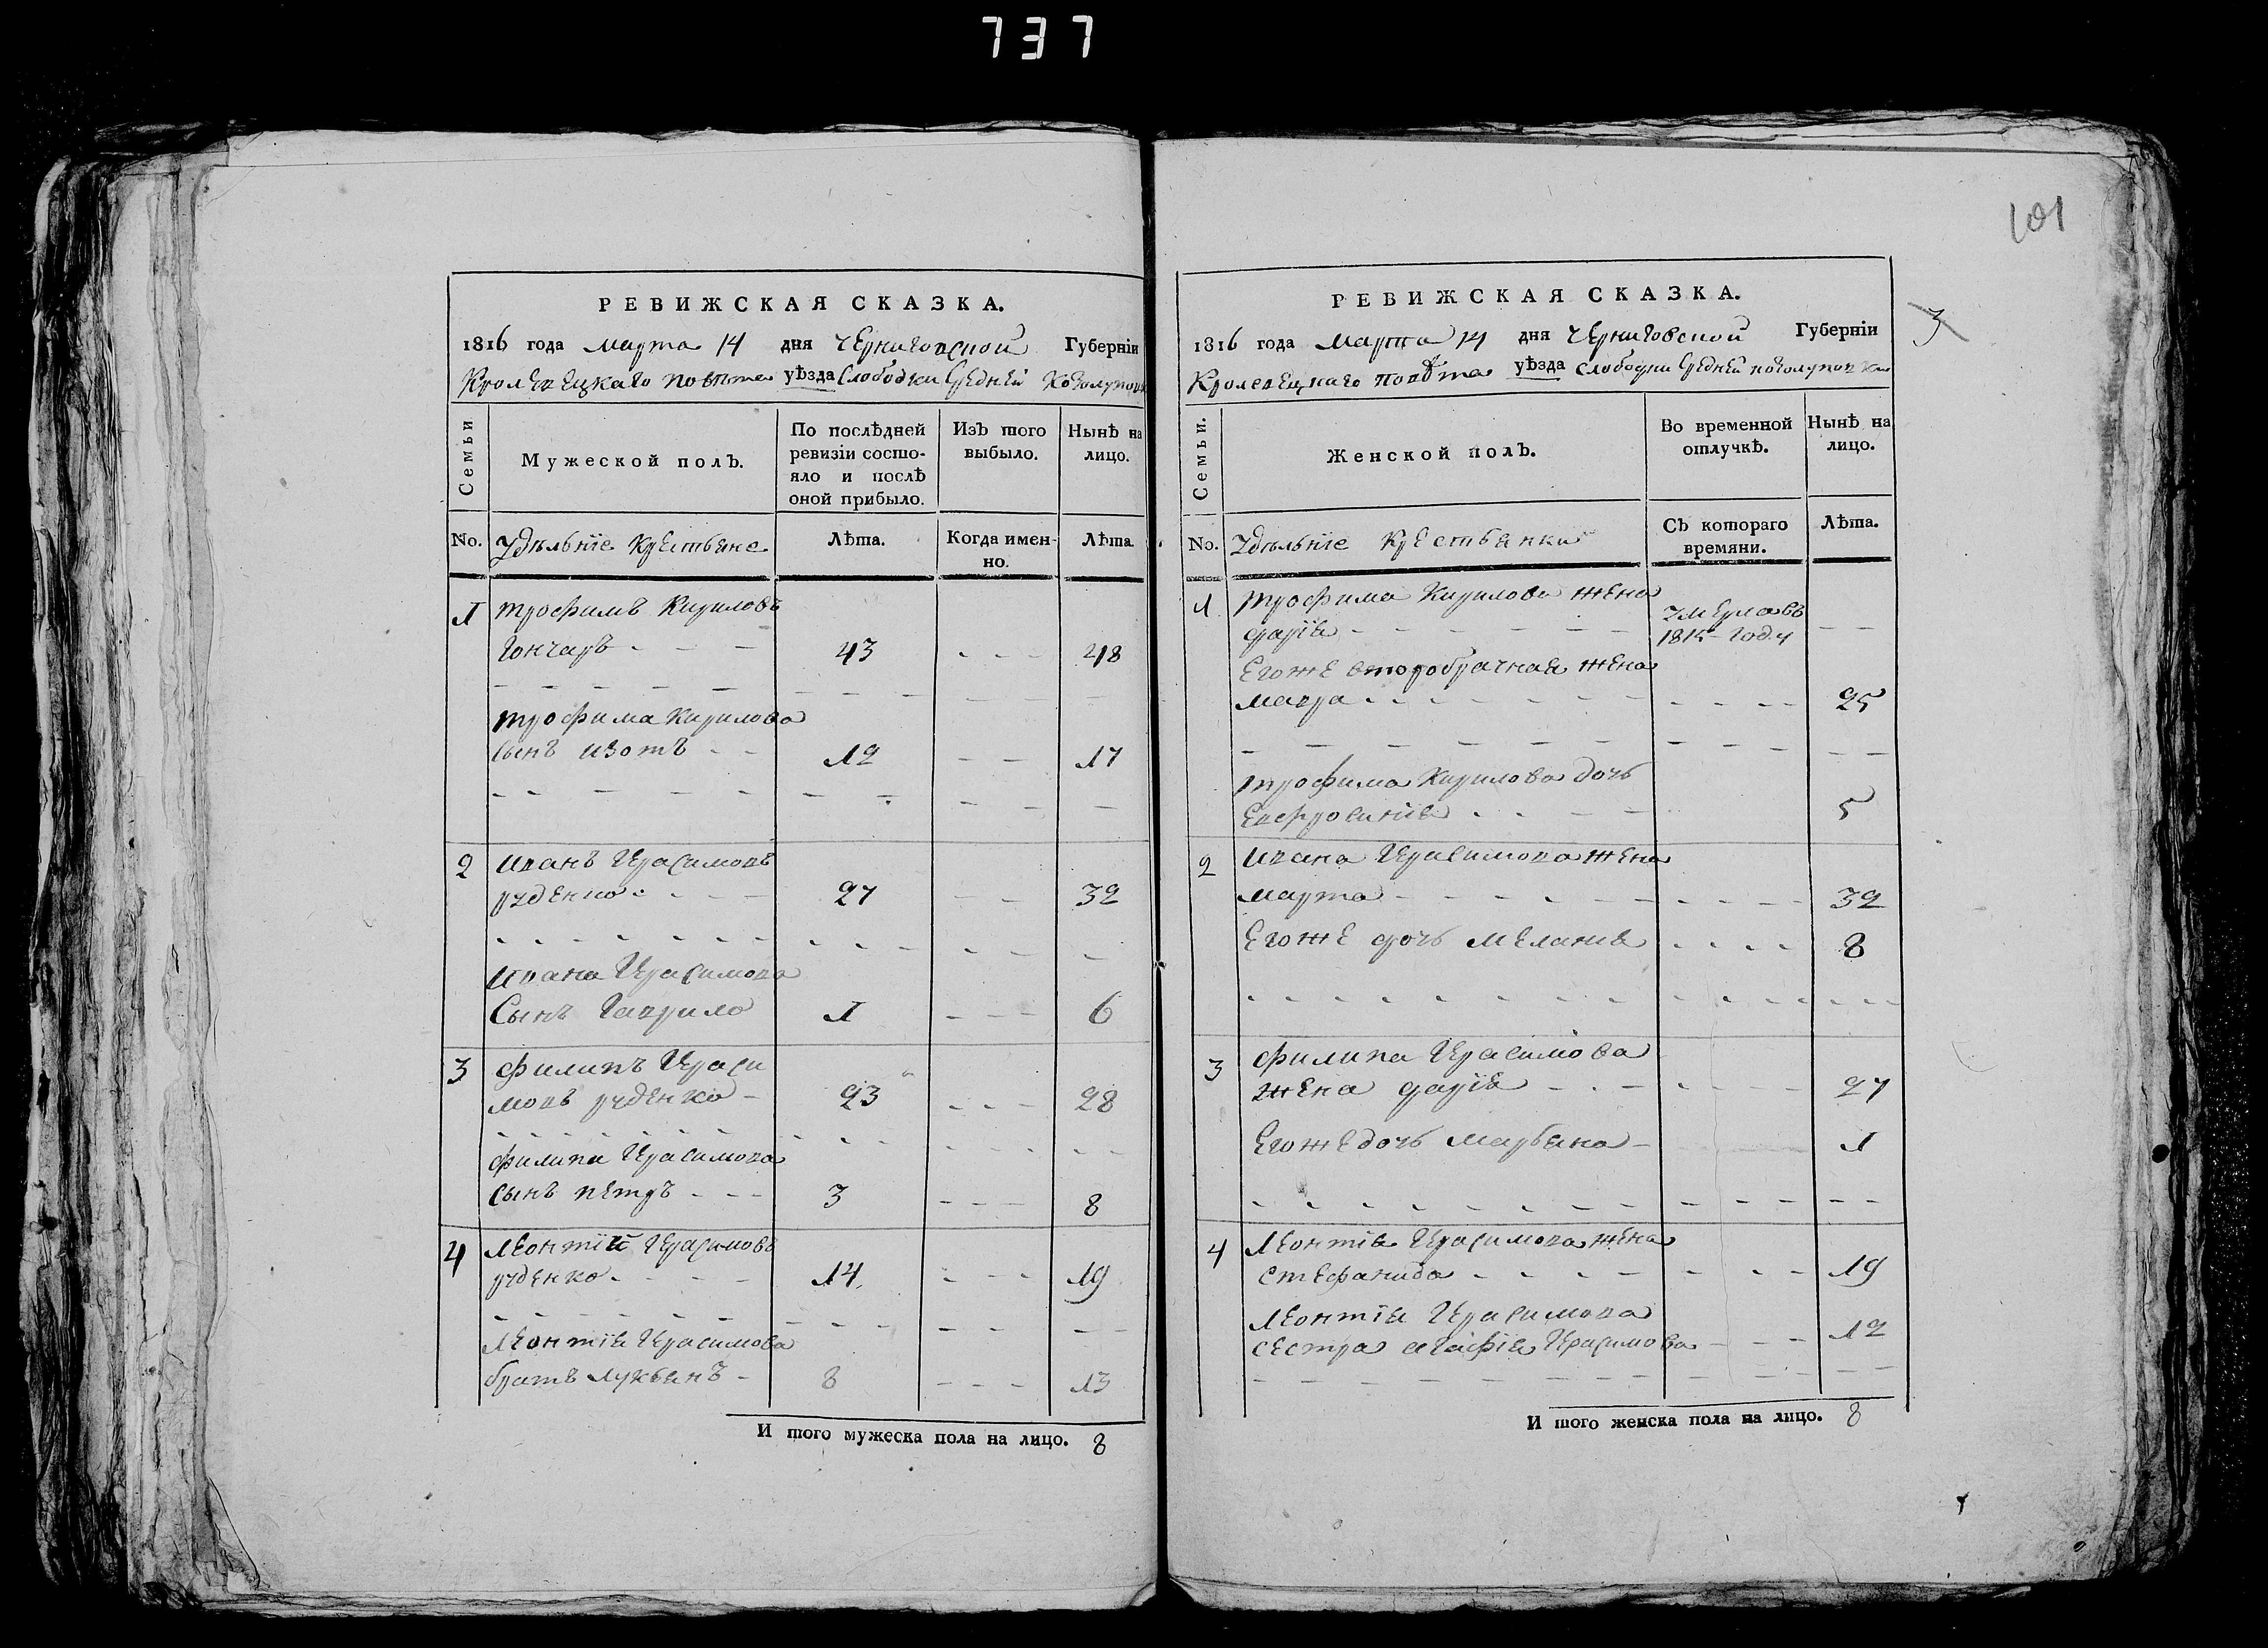 737
РЕВИЖСКАЯ СКАЗКА.
1816 года марта 14 дня Черниговской Губерніи
Кролевецкаго повѣта уѣзда Слободки Средней
Семьи
Мужеской полъ.
По послѣдней ревизіи состояло и послѣ оной прибыло.
Изъ того выбыло.
Нынѣ на лицо.
No. Удѣльніе Крестьяне
Лѣта.
Когда именно.
Лѣта.
1 Трофимъ Кириловъ
Гончаръ - - - 43 - - - 48
Трофима Кирилова
сынъ Изотъ - - 12 - - 17
2 Иванъ Герасимовъ
руденко - - - 27 - - 32
Ивана Герасимова
Сынъ Гаврило 1 - - - 6
3 Филипъ Гераси
мовъ руденко - 23 - - - 28
Филипа Герасимова
сынъ петръ - - - 3 - - - 8
4 Леонтій Герасимовъ
руденко - - - 14 - - - 19
Леонтія Герасимова
братъ Лукьянъ - 8 - - - 13
И того мужеска пола на лицо. 8
101
3
РЕВИЖСКАЯ СКАЗКА.
1816 года Марта 14 дня Черниговской Губерніи
Кролевецкаго повѣта уѣзда слободки Средней
Семьи.
Женской полъ.
Во временной отлучкѣ.
Нынѣ на лицо.
No. Удѣльніе Крестьянки
Съ котораго времяни.
Лѣта.
1 Трофима Кирилова жена
дарія - - - умерла въ 1815 году - -
Егоже второбрачная жена
мавра - - - 25
Трофима Кирилова дочь
Евфросинія - - - 5
2 Ивана Герасимова жена
марта - - - 32
Егоже дочь Меланія - - - 8
3 Филипа Герасимова
жена дарія - - - 27
Егоже дочь Марьяна - 1
4 Леонтія Герасимова жена
Стефанида - - - 19
Леонтія Герасимова
сестра агафія Герасимова - - - 12
И того женска пола на лицо. 8